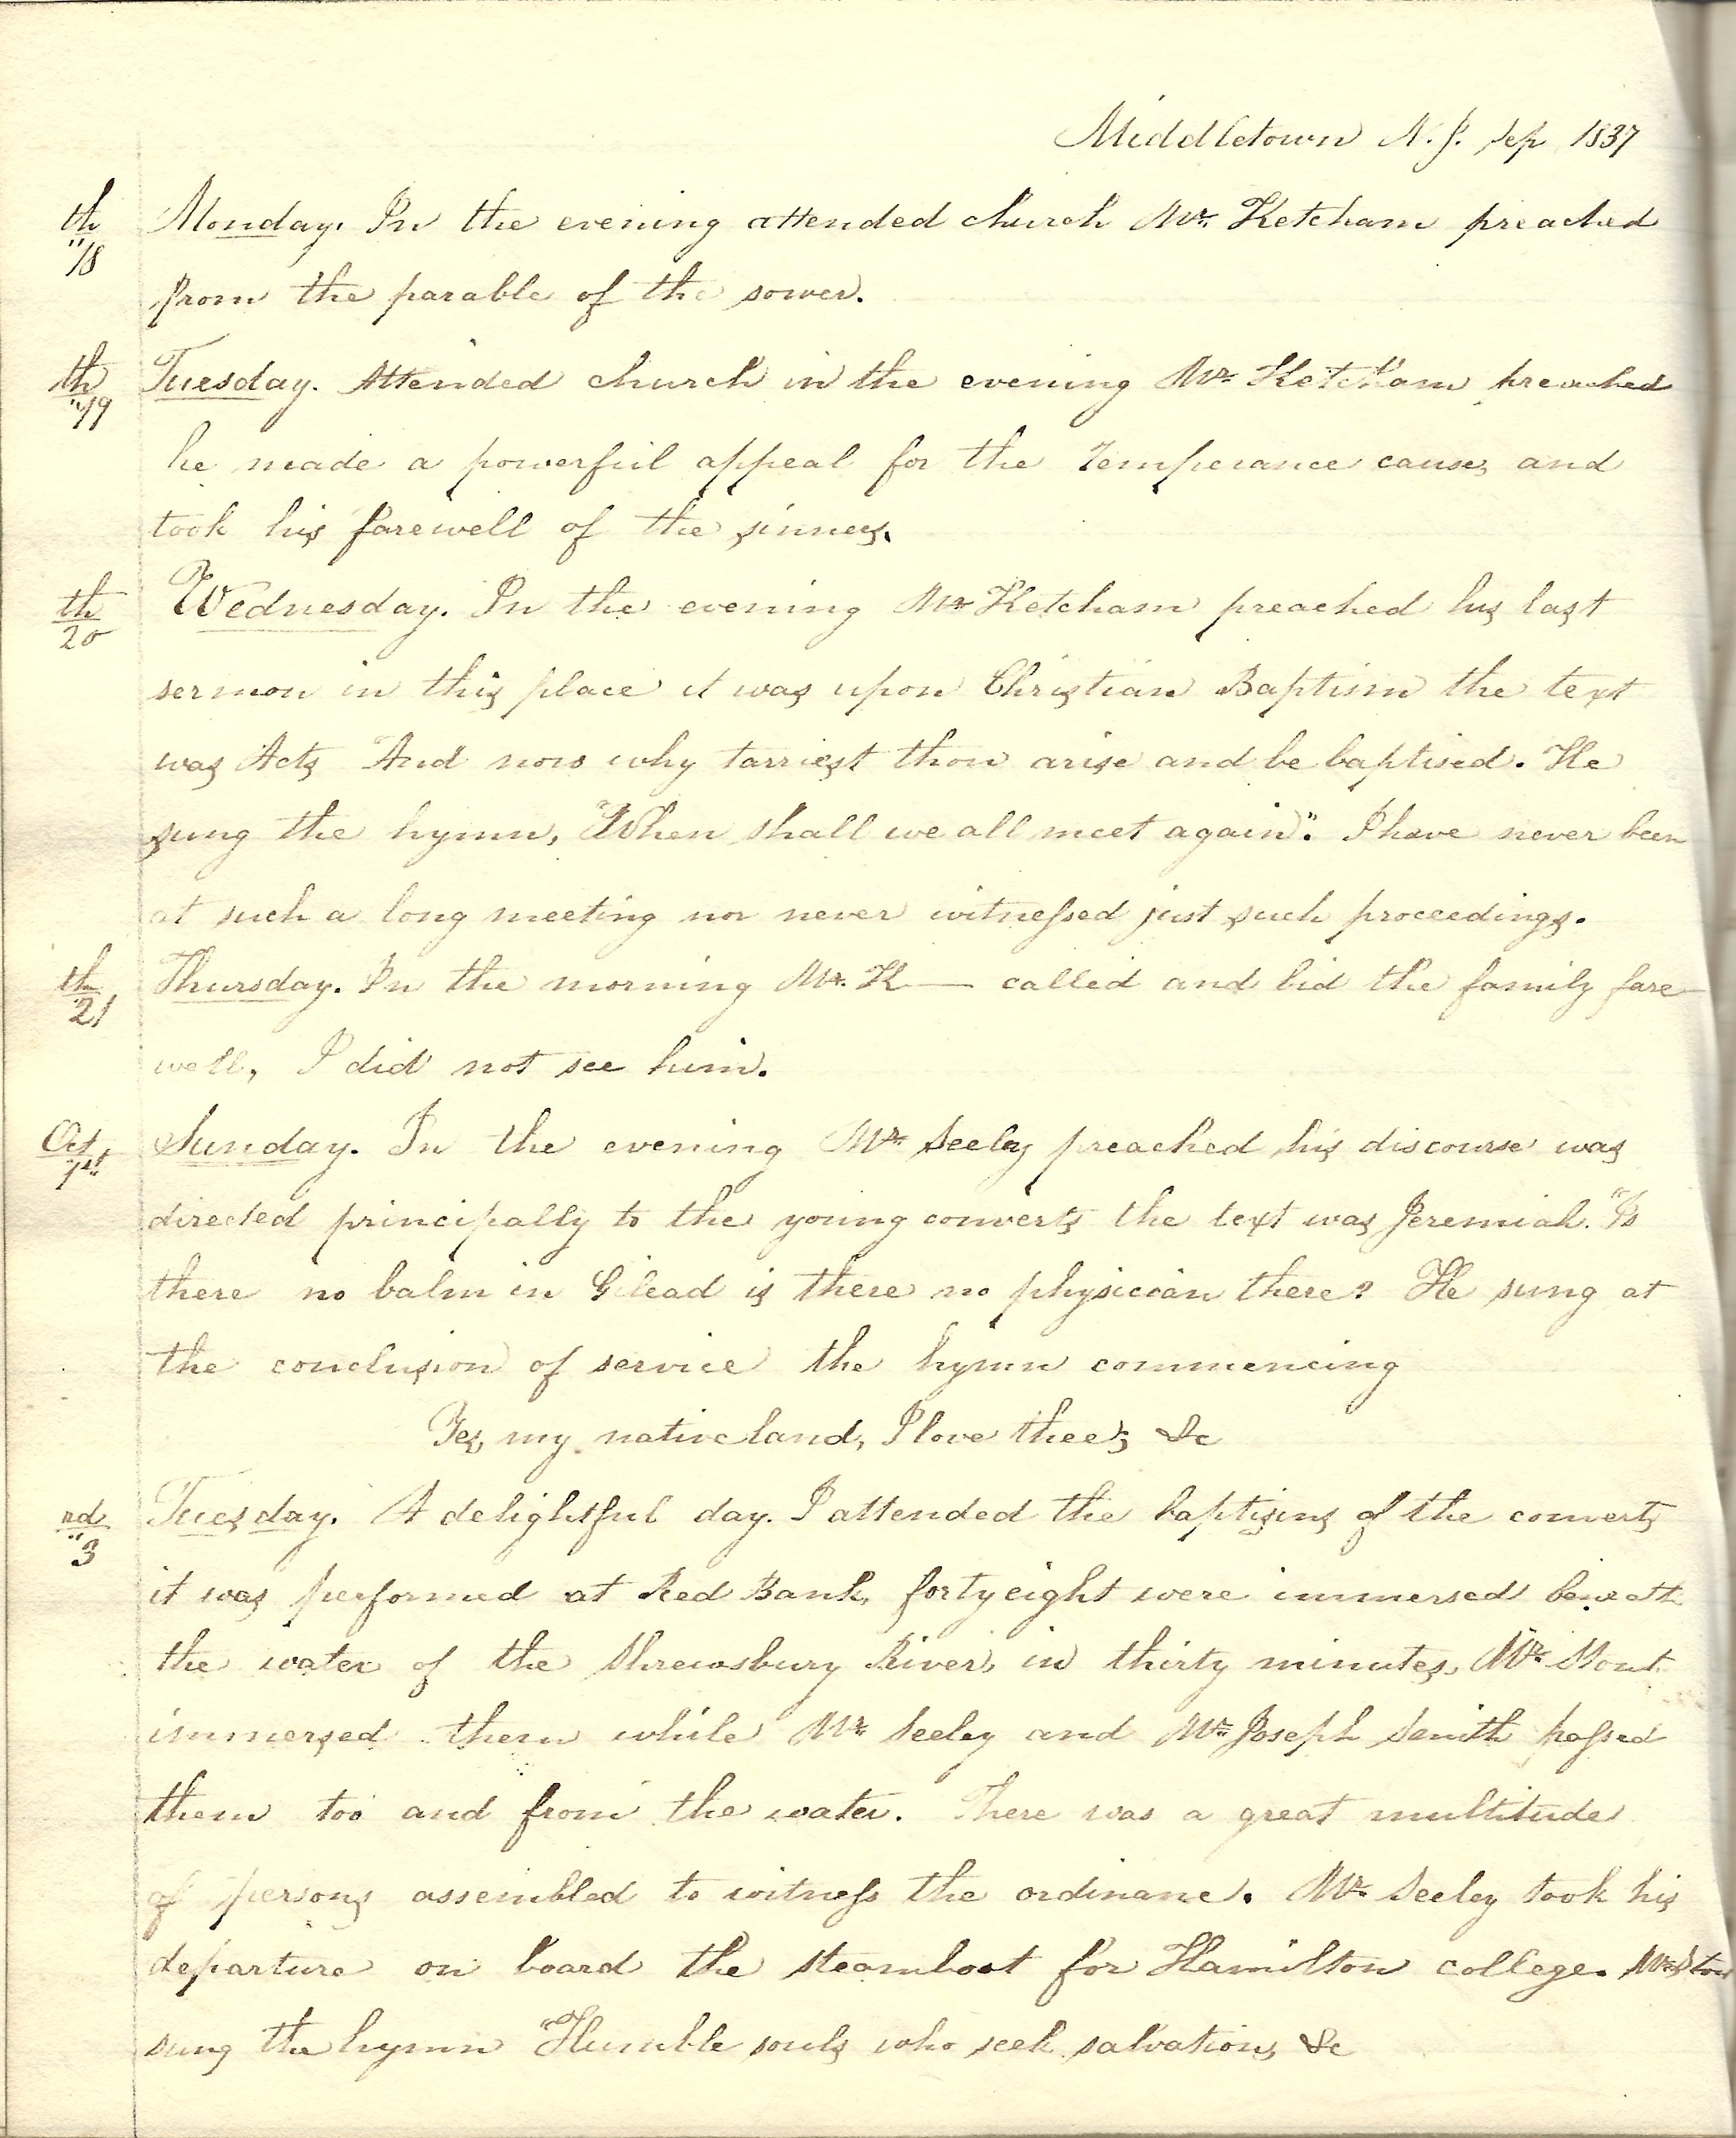 Middletown N.J. Sep 1837
th 18 Monday. In the evening attended church Mr. Ketcham preached
from the parable of the sower.
th 19 Tuesday. Attended church in the evening Mr. Ketcham preached
he made a powerful appeal for the Temperance cause, and
took his farewell of the sinners.
th 20 Wednesday. In the evening Mr Ketcham preached his last
sermon in this place it was upon Christian Baptism the text
was Acts And now why tarriest thou arise and be baptised. He
sung the hymn, "When shall we all meet again". I have never been
at such a long meeting nor never witnessed just such proceedings.
th 21 Thursday. In the morning Mr. K— called and bid the family fare
well, I did not see him.
Oct 1st Sunday. In the evening Mr. Seeley preached his discourse was
directed principally to the young converts the text was Jeremiah. "Is
there no balm in Gilead is there no physician there? He sung at
the conclusion of service the hymn commencing
Yes, my native land, I love thee; &c
rd 3 Tuesday. A delightful day. I attended the baptising of the converts
it was performed at Red Bank, forty eight were immersed beneath
the water of the Shrewsbury River, in thirty minutes, Mr. Stout
immersed them while Mr. Seeley and Mr. Joseph Smith passed
them too and from the water. There was a great multitude
of persons assembled to witness the ordinane. Mr. Seeley took his
departure on board the steamboat for Hamilton college. Mr. Stout
sung the hymn "Humble souls who seek salvation, &c